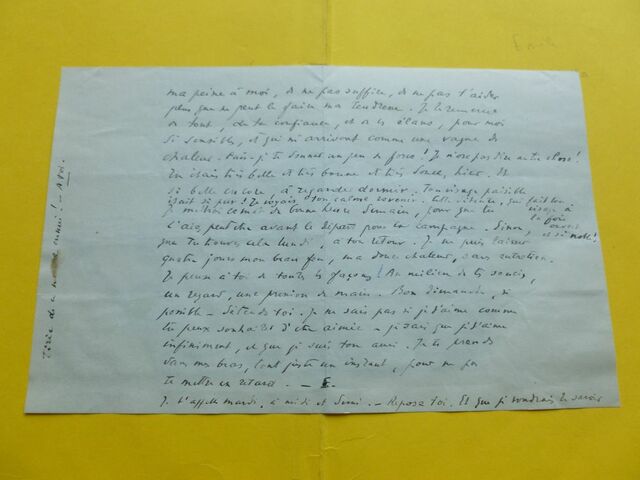 ma peine à moi, de ne pas suffire, de ne pas t'aider
plus que ne peut le faire ma tendresse. Je te remercie
de tout, de ta confiance, et de tes élans, pour moi
si sensibles, et qui m'arrivent comme une vague de
chaleur. Puis-je te donner un peu de force! Je n'ose pas dire autre chose!
Tu étais très belle et très bonne et très douce, hier, et
si belle encore à regarder dormir. Ton visage paisible
était si pur! Je voyais ton calme revenir. Cette détente, qui fait ton
visage à
la fois
ouvert
et si noble!
Je mettrai ce mot de bonne heure demain, pour que tu
l'aies, peut-être avant le départ pour la campagne. Sinon,
que tu trouves cela lundi, à ton retour. Je ne puis laisser
quatre jours mon beau feu, ma douce chaleur, sans entretien.
Je pense à toi de toutes les façons! Au milieu de tes soucis,
un regard, une pression de main. Bon dimanche, si
possible. Détends-toi. Je ne sais pas si je t'aime comme
tu peux souhaiter d'être aimée - je sais que je t'aime
infiniment, et que je suis ton ami. Je te prends
dans mes bras, tout juste un instant, pour ne pas
te mettre en retard. - E.
Je t'appelle mardi, à midi et demi. - Repose-toi. Et que je voudrais te savoir
Tirée de ce ennui! - A toi.